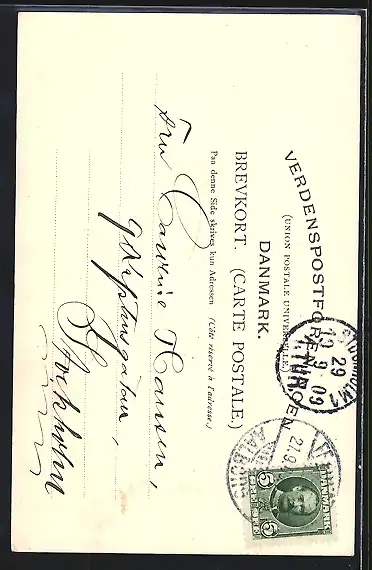 VERDENSPOSTFORENINGEN
(UNION POSTALE UNIVERSELLE.)
DANMARK.
BREVKORT. (CARTE POSTALE.)
Paa denne Side skrives kun Adressen (Côté réservé à l'adresse.)
Fru Caroline Hansen,
Stockholm
STOCKHOLM 1
29
9 09
AALBORG
27.9.
DANMARK
5 5